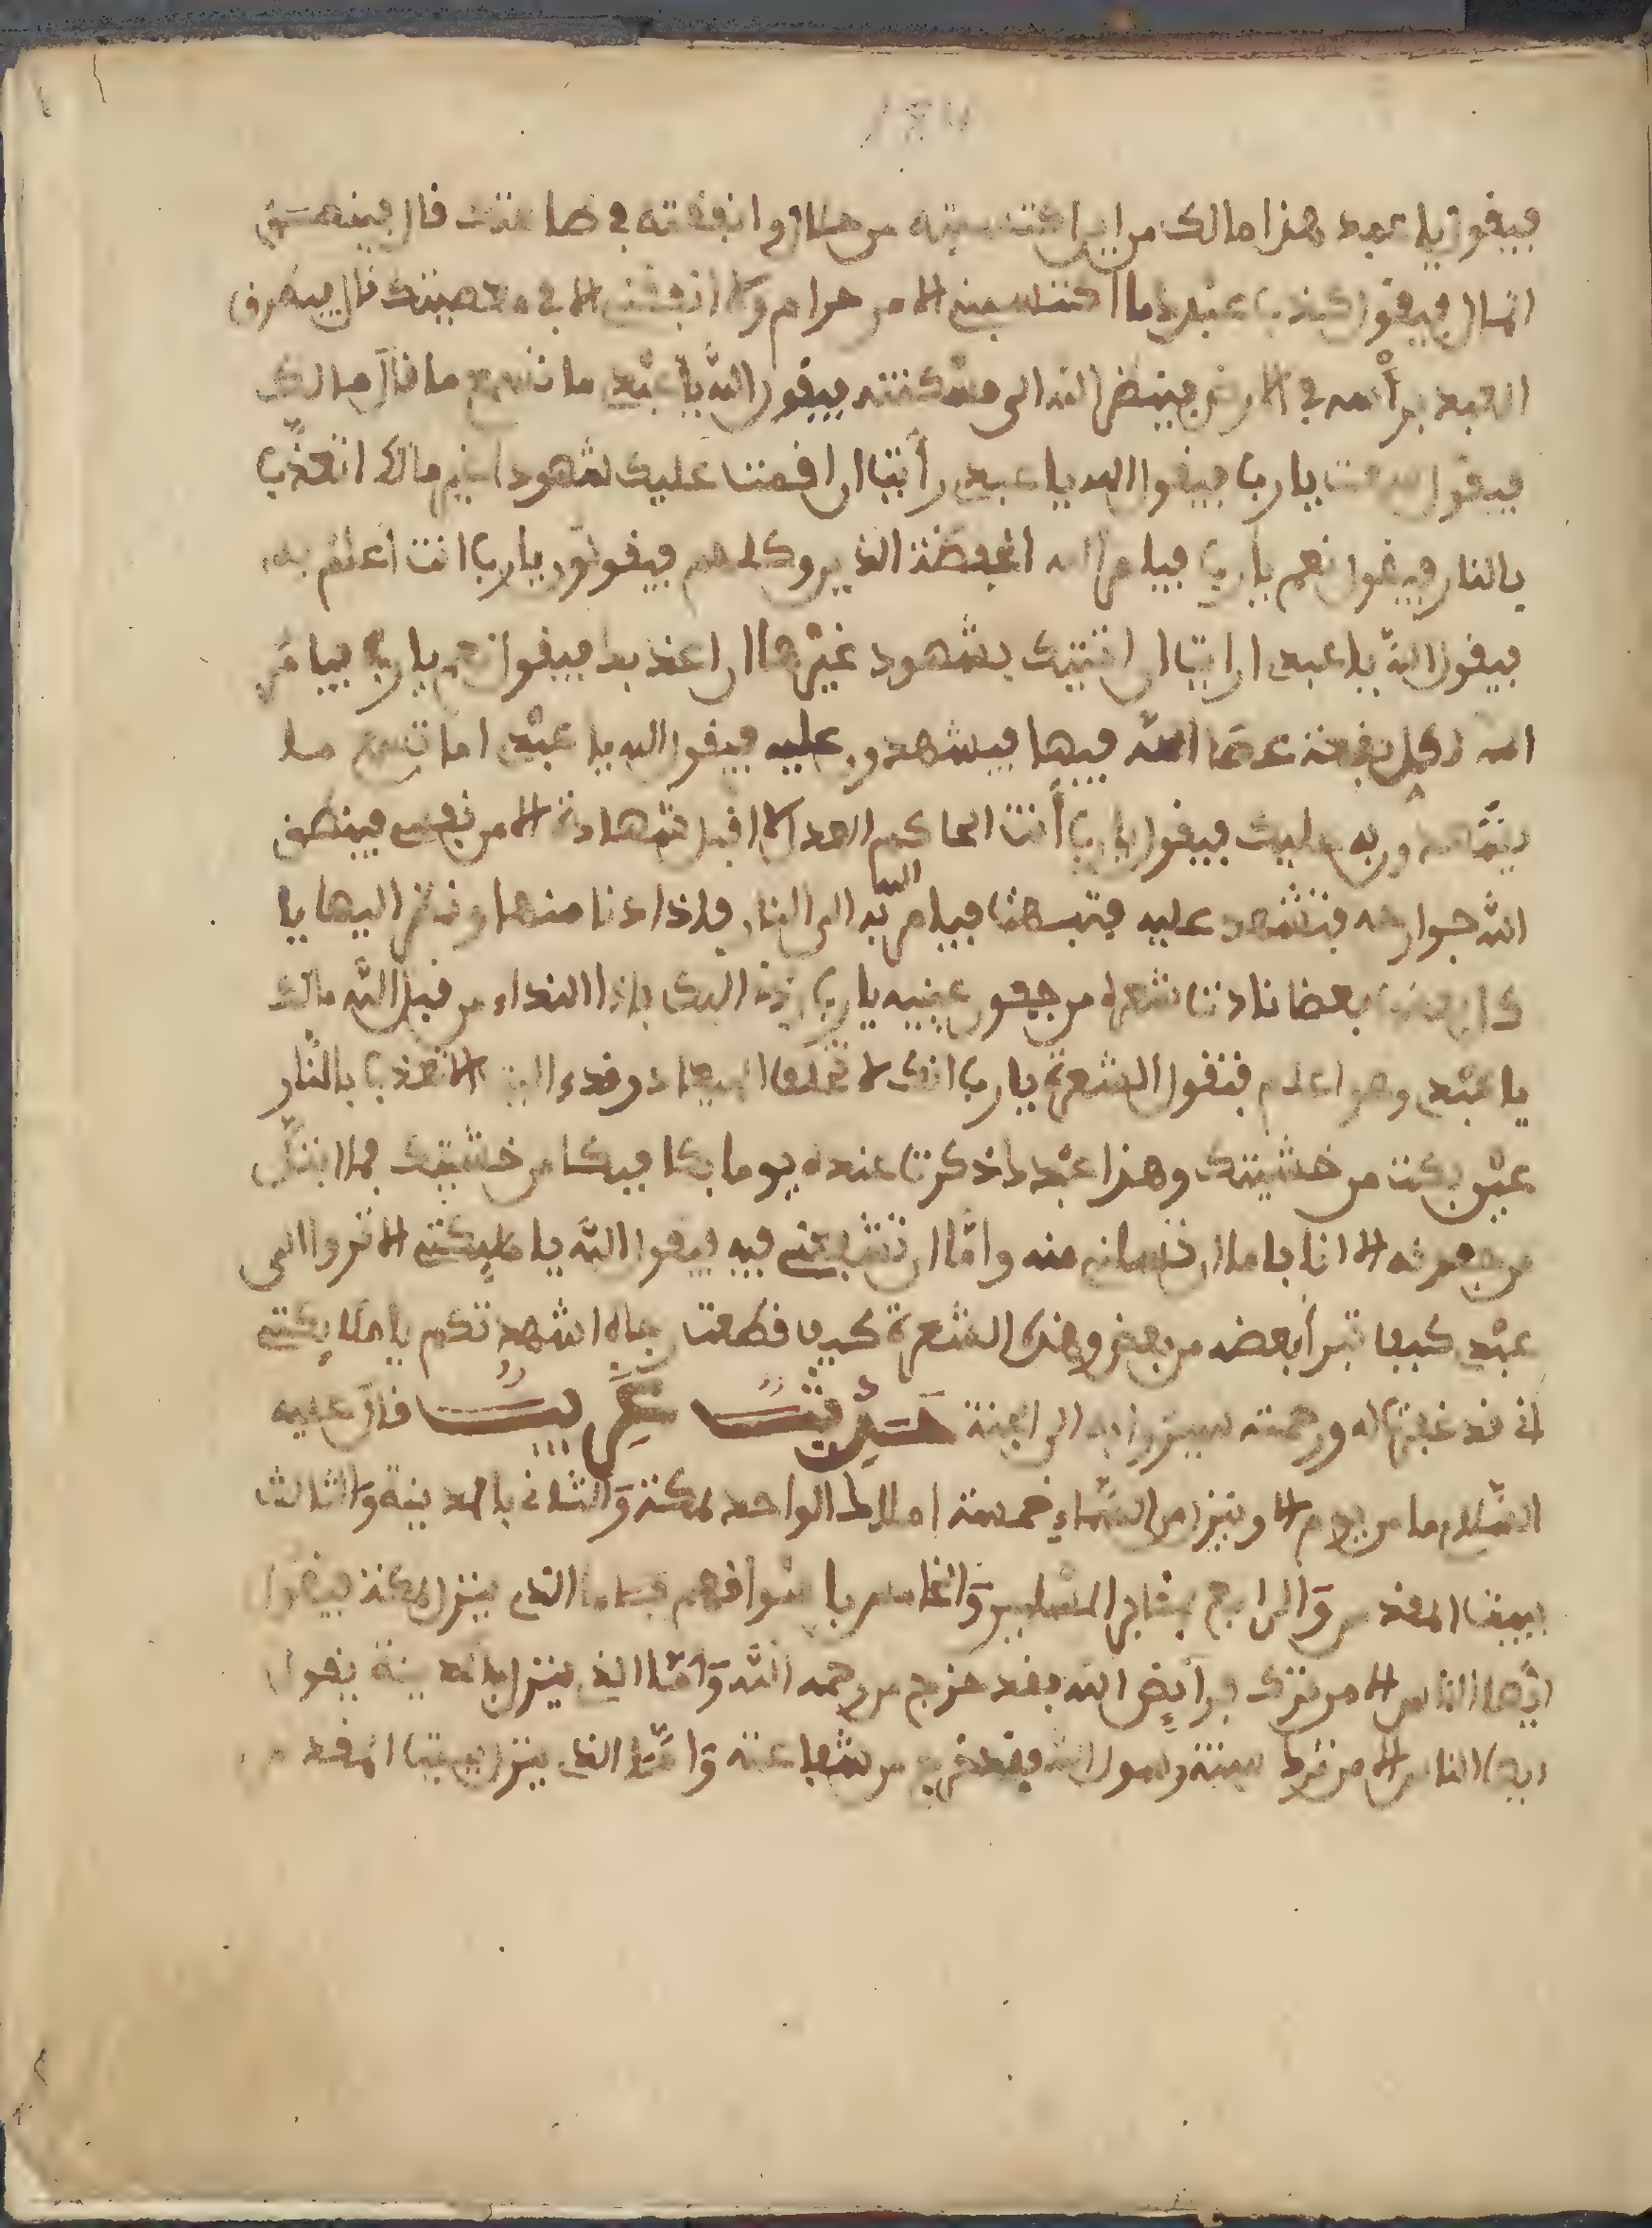 فيقول يا عبد هذا مالك من اين اكتسبته من حلال وانفقته في طاعتك قال فينطق
المال فيقول كذب عبدك ما اكتسبني الا من حرام ولا انفقني الا في معصيتك قال فيطرق
العبد برأسه في الارض فينظر الله الى مسكنته فيقول الله يا عبدي ما تسمع ما قال مالك
فيقول سمعت يا رب فيقول الله يا عبدي رأيت ان اقمت عليك شهودا غير مالك اتعذب
بالنار فيقول نعم يا رب فيامر الله الحفظة الذين وكلهم فيقولون يا رب انت اعلم به
فيقول الله يا عبدي ارايت ان اتيتك بشهود غيرها اعذبك فيقول نعم يا رب فيامر
الله كل بقعة عصا الله فيها فيشهدون عليه فيقول الله يا عبدي اما تسمع ما
يشهدون به عليك فيقول يا رب أنت الحاكم العدل لا اقبل شهادة الا من نفسي فينطق
الله جوارحه فتشهد عليه فيامر الله به الى النار فاذا دنا منها ونظر اليها يا
كل بعضها بعضا نادت شعرة من جفون عينيه يا رب اليك فاذا النداء من قبل الله مالك
يا عبدي وهو اعلم فتقول الشعرة يا رب انك لا تخلف الميعاد وقد الا تعذب بالنار
عين بكت من خشيتك وهذا عبدك ذكرت عنده يوما بكا فبكا من خشيتك فما ابتل
من دموعه الا انا فاما ان منه واما ان تشفعني فيه فيقول الله يا ملايكتي الا تروا الى
عبدي كيف تبرأ بعضه من بعض وهذه الشعرة كيف قطعت رجاه اشهدتكم يا ملايكتي
اني قد غفرت له ورحمته سيروا به الى الجنة حديث غريب قال عليه
السلام ما من يوم الا وينزل من السماء خمسة املاك الواحد بمكة والثاني بالمدينة والثالث
ببيت المقدس والرابع بمقابر المسلمين والخامس باسواقهم فاما الذي ينزل بمكة فيقول
ايها الناس الا من ترك فرايض الله فقد خرج من رحمة الله واما الذي ينزل بالمدينة يقول
ايها الناس الا من ترك سنة رسول الله فقد خرج من شفاعته واما الذي ينزل ببيت المقدس